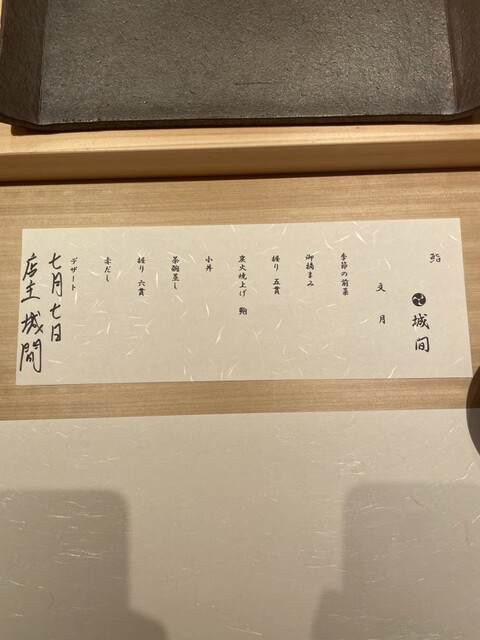 鮨
城間
文月
季節の前菜
御摘まみ
握り 五貫
炭火焼上げ 鮑
小丼
茶碗蒸し
握り 六貫
赤だし
デザート
七月七日
店主 城間